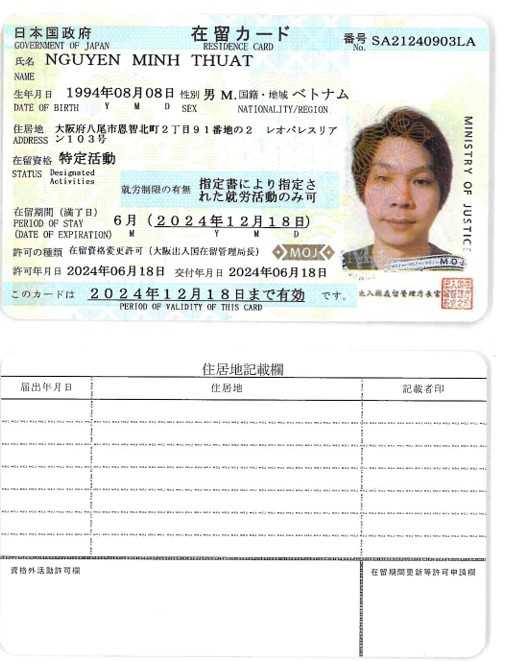 日本国政府 在留カード 番号 SA21240903LA
GOVERNMENT OF JAPAN RESIDENCE CARD No.
氏名 NGUYEN MINH THUAT
NAME
生年月日 1994年08月08日 性別 男 M. 国籍・地域 ベトナム
DATE OF BIRTH Y M D SEX NATIONALITY/REGION
住居地 大阪府八尾市恩智北町2丁目91番地の2 レオパレスリア
ADDRESS ン103号
在留資格 特定活動
STATUS Designated
Activities
就労制限の有無 指定書により指定さ
れた就労活動のみ可
在留期間(満了日)
PERIOD OF STAY 6月(2024年12月18日)
(DATE OF EXPIRATION) M Y M D
許可の種類 在留資格変更許可(大阪出入国在留管理局長) MOJ
許可年月日 2024年06月18日 交付年月日 2024年06月18日
このカードは 2024年12月18日まで有効 です。
PERIOD OF VALIDITY OF THIS CARD
MINISTRY OF JUSTICE
MOJ
出入国在留管理庁長官
住居地記載欄
届出年月日 住居地 記載者印
資格外活動許可欄 在留期間更新等許可申請欄